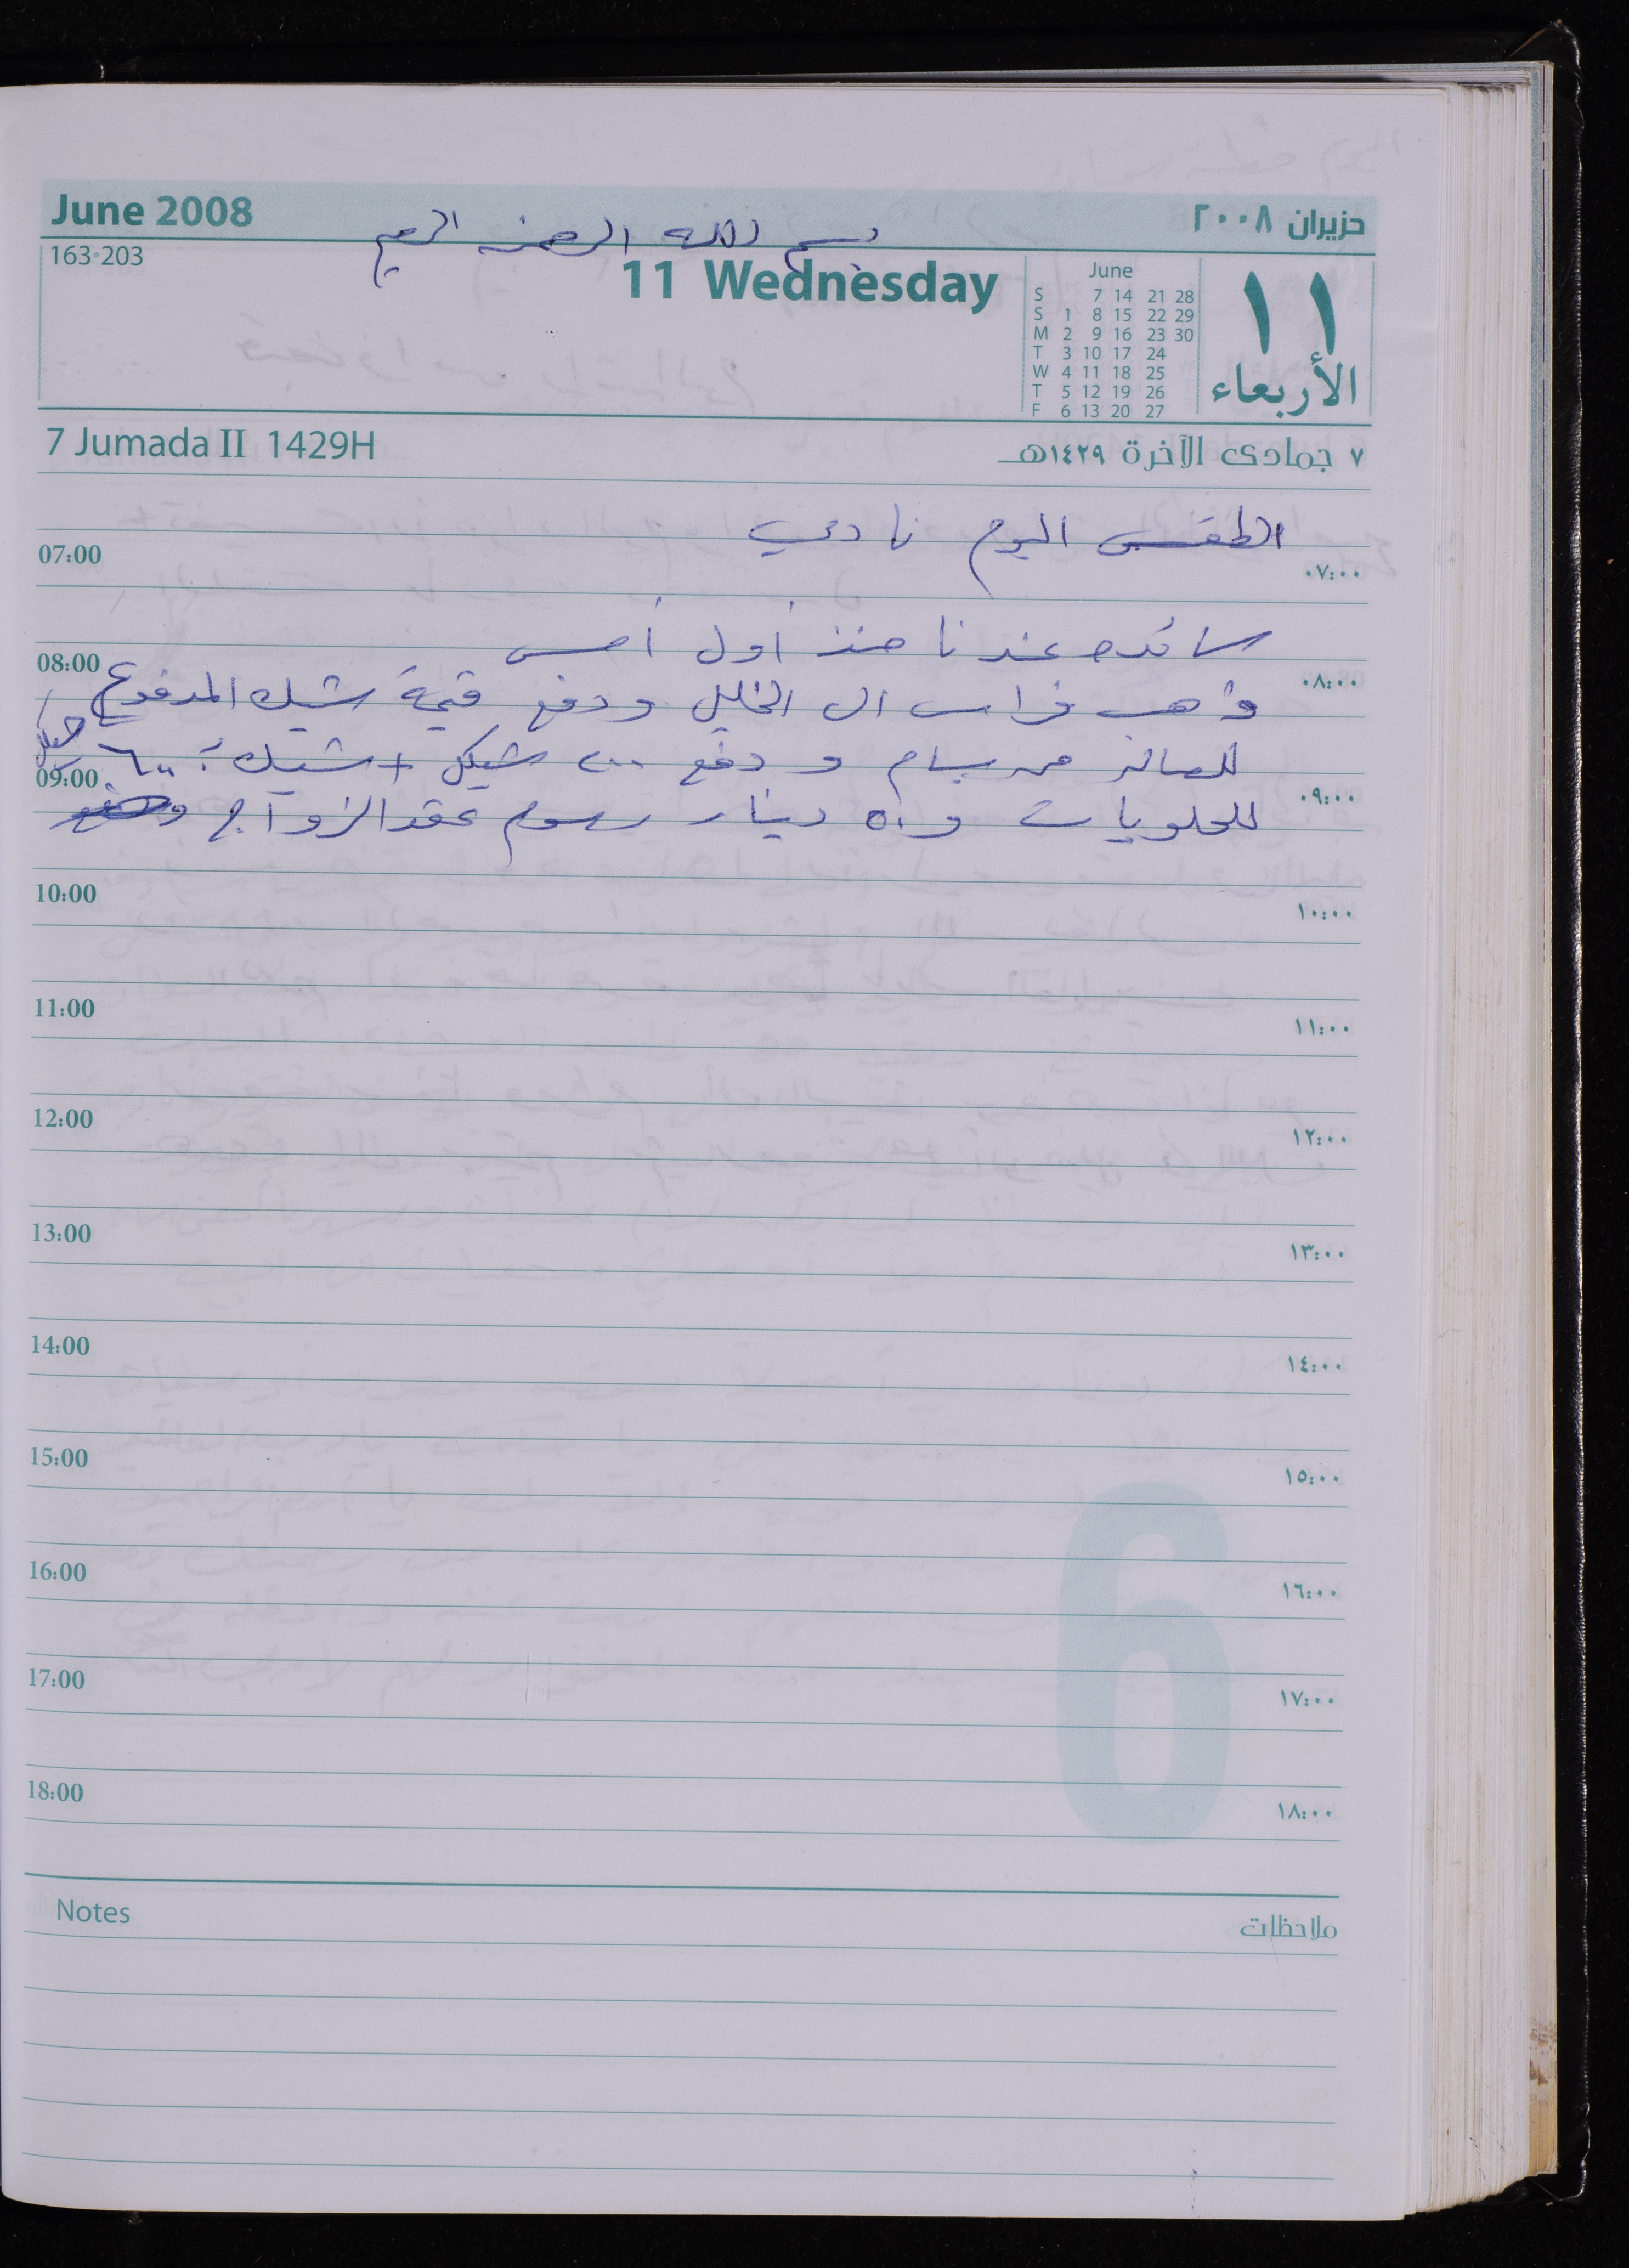 June 2008
حزيران ٢٠٠٨
بسم الله الرحمن الرحيم
163-203
11 Wednesday
June
S 7 14 21 28
S 1 8 15 22 29
M 2 9 16 23 30
T 3 10 17 24
W 4 11 18 25
T 5 12 19 26
F 6 13 20 27
١١
الأربعاء
7 Jumada II 1429H
٧ جمادى الآخرة ١٤٢٩هـ
الطقس اليوم نادي
07:00 ٠٧:٠٠
سائده عندنا منذ أول أمس
08:00 ٠٨:٠٠
وذهب فراس الى الخليل ودفع قيمة شيك المدفوع
للصالة من بسام و دفع ٢٠٠ شيكل + شيك ٦٠٠
09:00 ٠٩:٠٠
للحلويات و ٥٠ دينار رسوم عقد الزواج
10:00 ١٠:٠٠
11:00 ١١:٠٠
12:00 ١٢:٠٠
13:00 ١٣:٠٠
14:00 ١٤:٠٠
15:00 ١٥:٠٠
16:00 ١٦:٠٠
17:00 ١٧:٠٠
18:00 ١٨:٠٠
6
Notes
ملاحظات